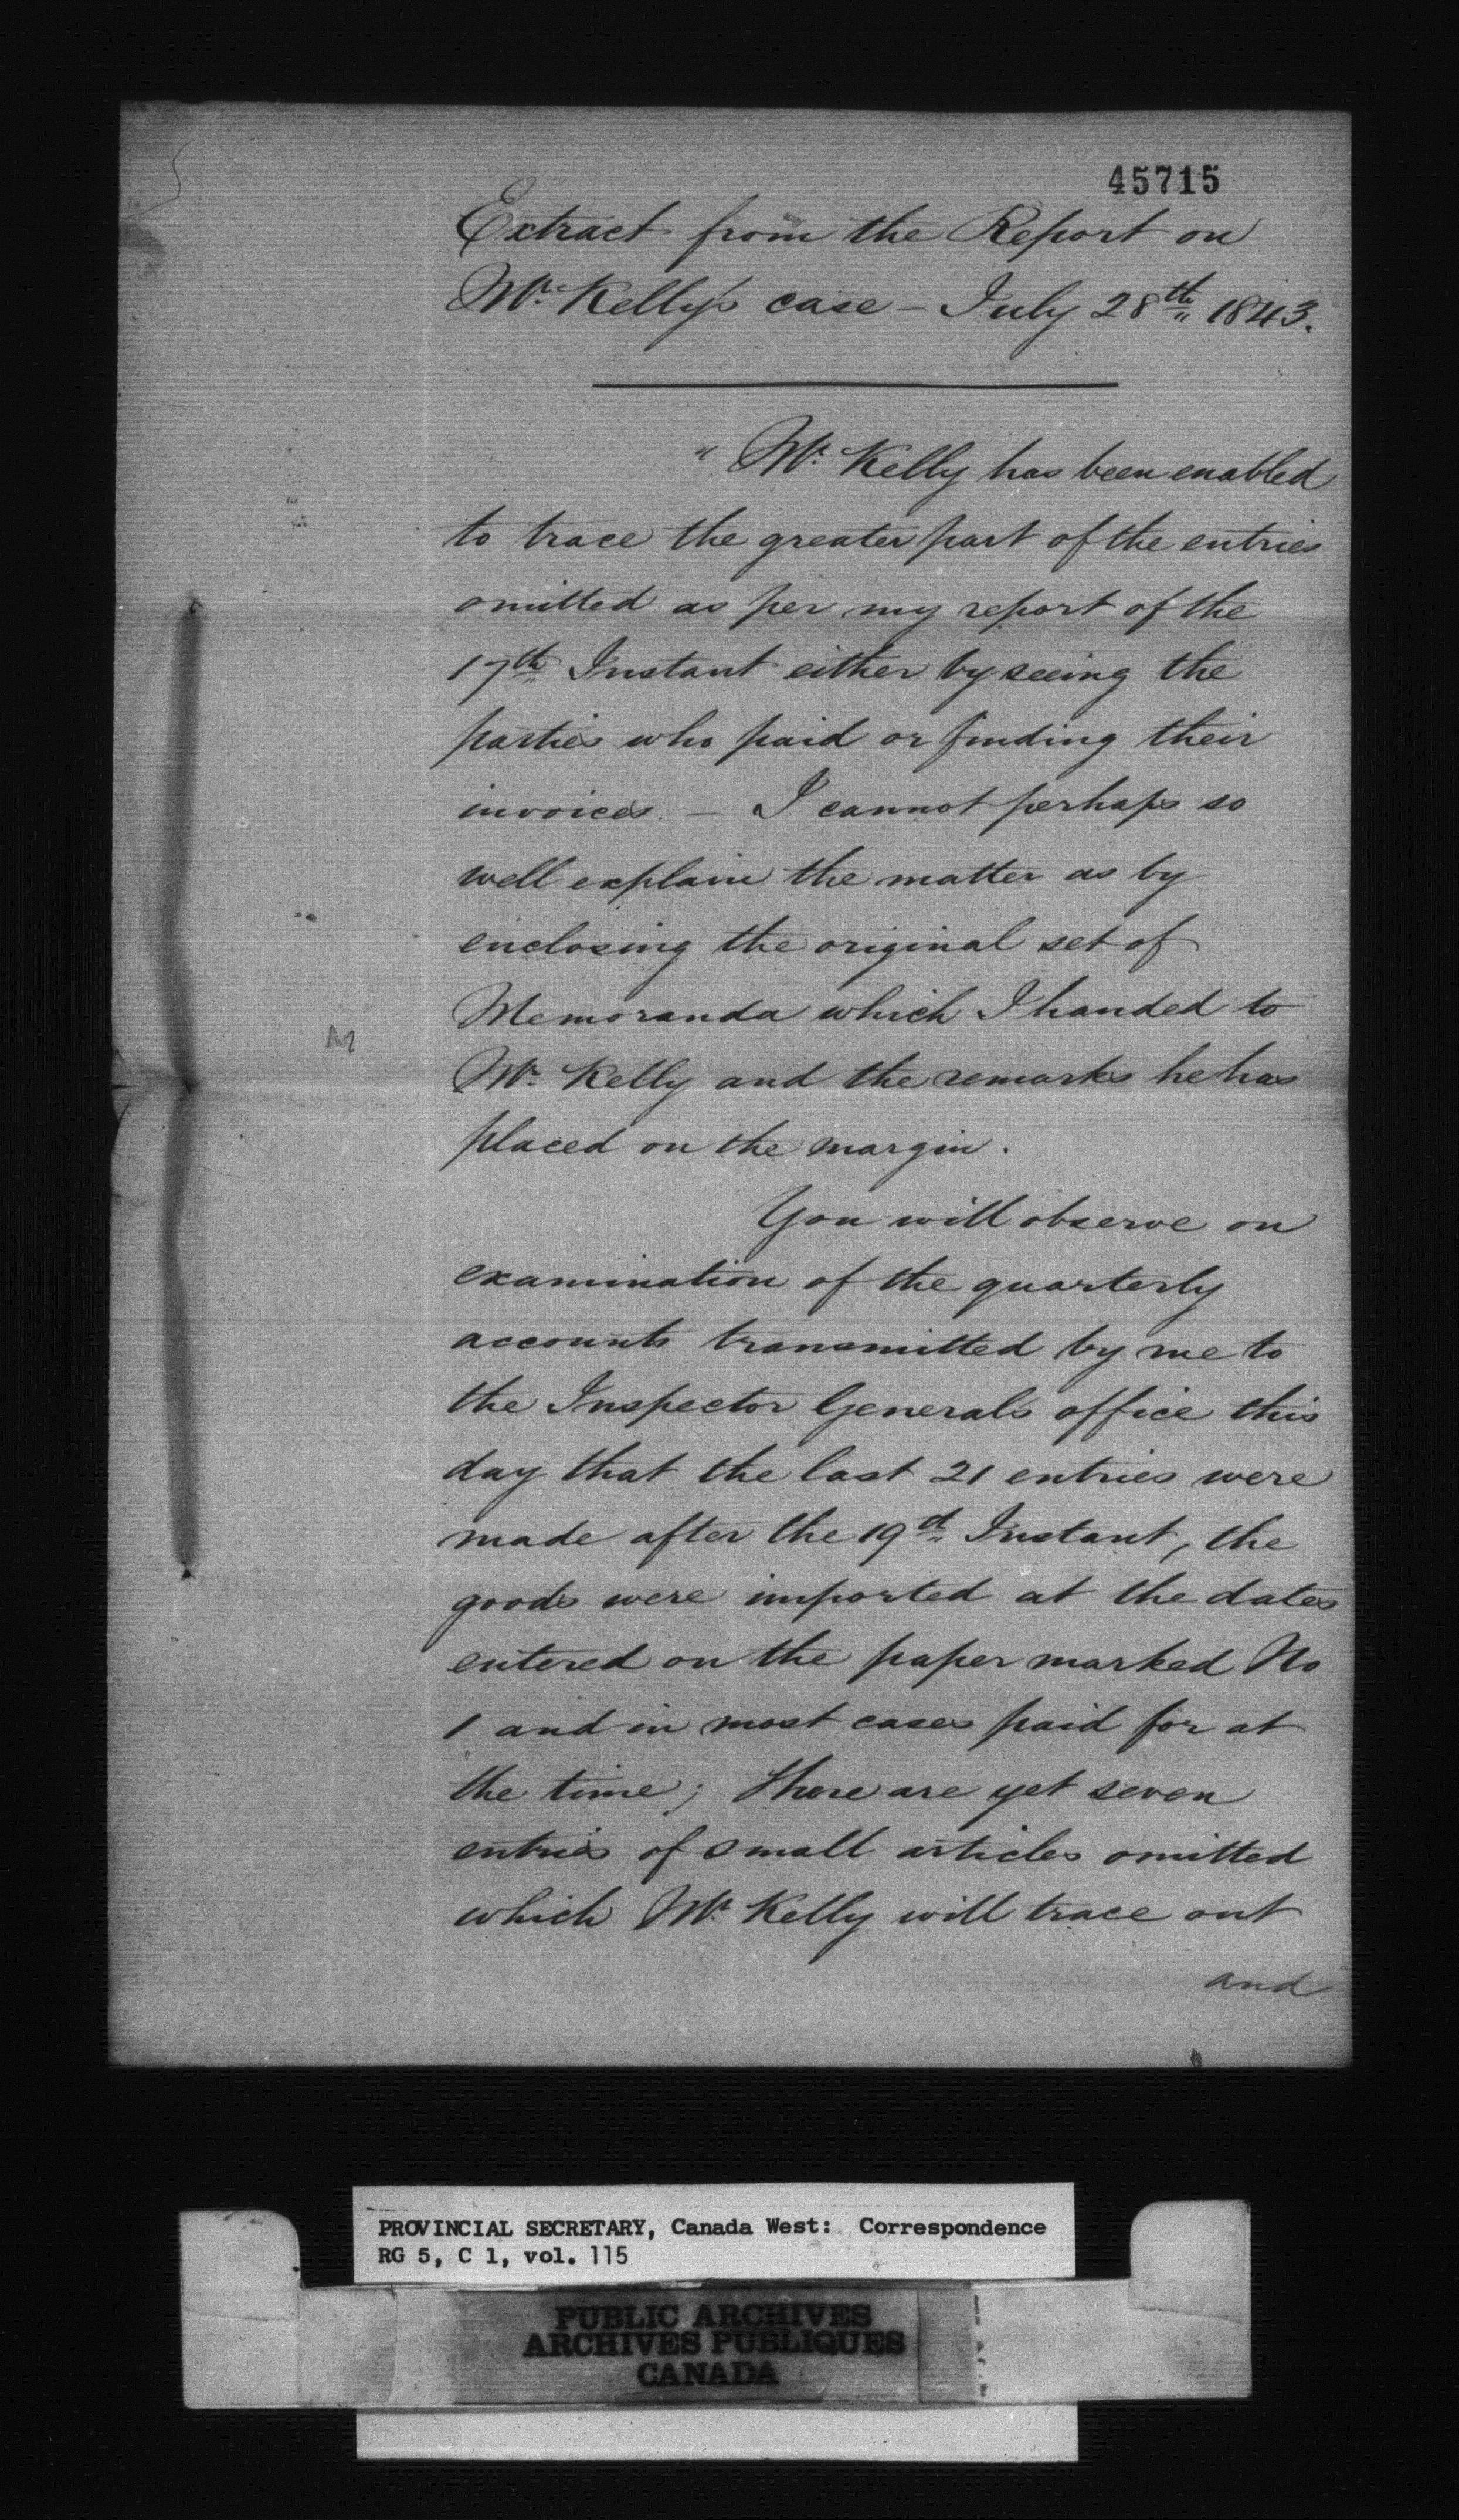 45715
Extract from the Report on
Mr. Kelly's case - July 28th 1843.
" Mr. Kelly has been enabled
to trace the greater part of the entries
omitted as per my report of the
17th Instant either by seeing the
parties who paid or finding their
invoices. - I cannot perhaps so
well explain the matter as by
enclosing the original set of
Memoranda which I handed to
Mr. Kelly and the remarks he has
placed on the margin.
You will observe on
examination of the quarterly
accounts transmitted by me to
the Inspector General's office this
day that the last 21 entries were
made after the 19th Instant, the
goods were imported at the dates
entered on the paper marked No
1 and in most cases paid for at
the time; there are yet seven
entries of small articles omitted
which Mr. Kelly will trace out
and
PROVINCIAL SECRETARY, Canada West: Correspondence
RG 5, C 1, vol. 115
PUBLIC ARCHIVES
ARCHIVES PUBLIQUES
CANADA